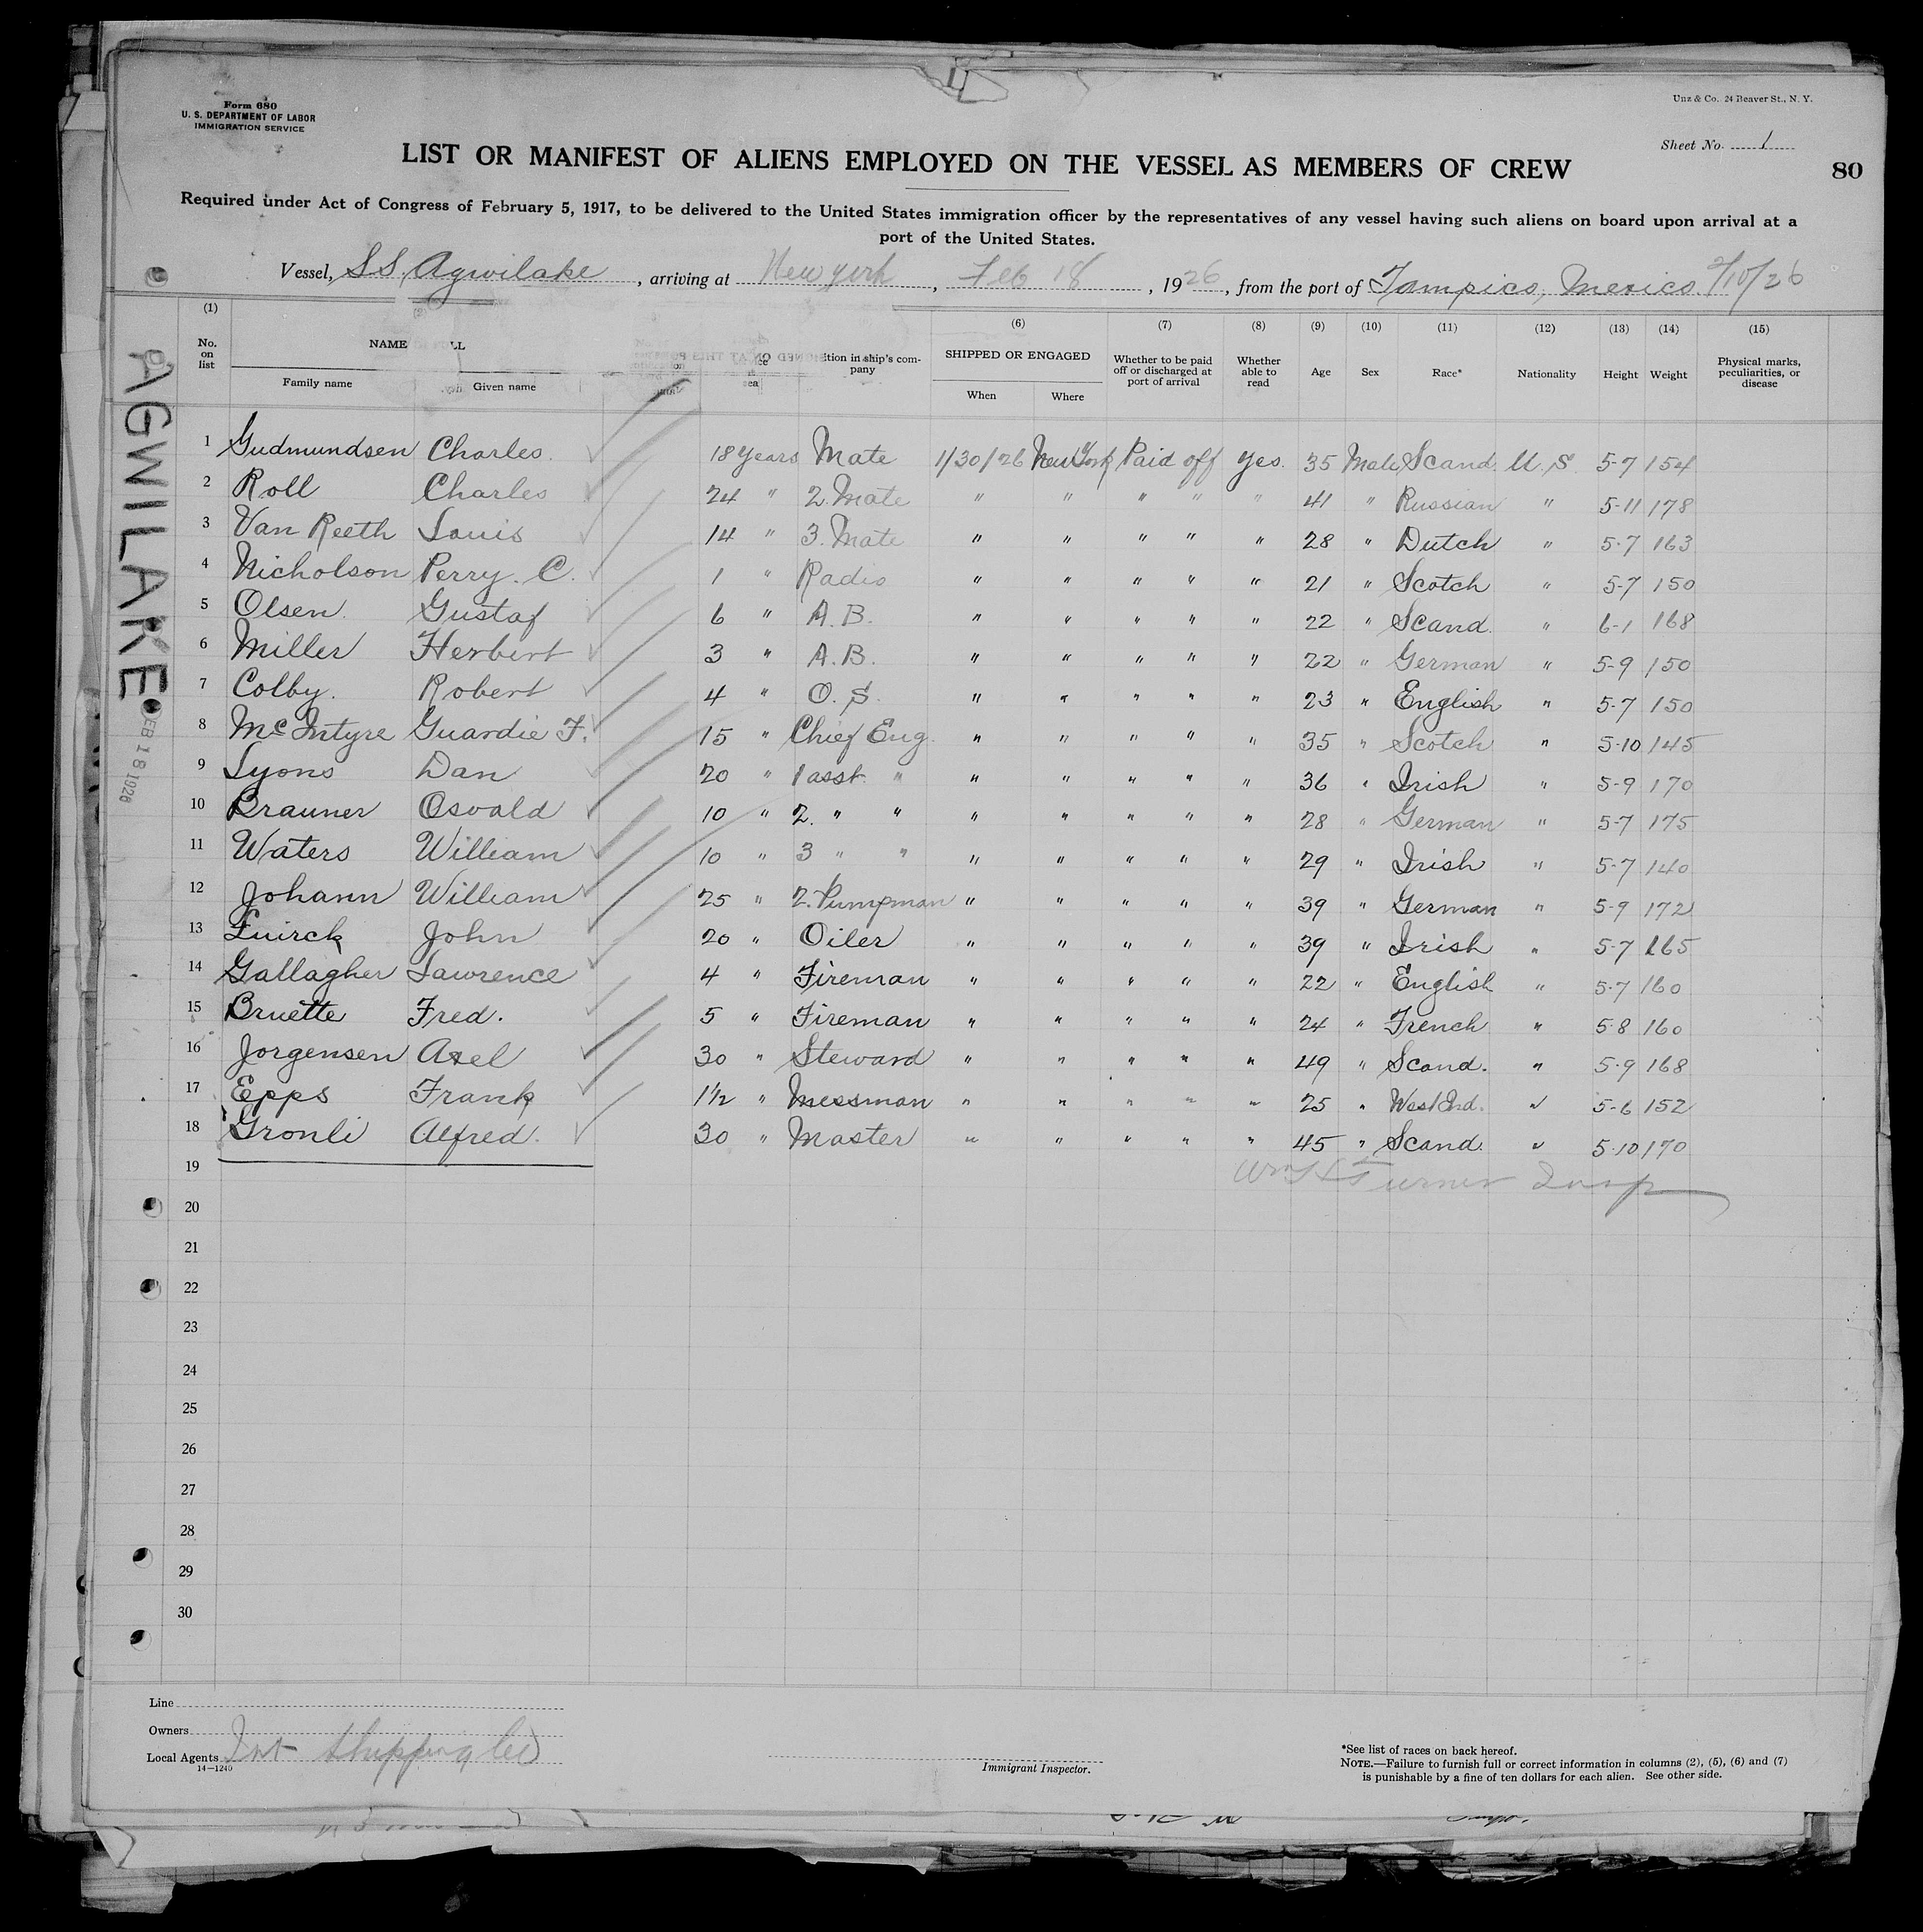 Form 680
U. S. DEPARTMENT OF LABOR
IMMIGRATION SERVICE
Unz & Co. 24 Beaver St., N. Y.
Sheet No. 1
LIST OR MANIFEST OF ALIENS EMPLOYED ON THE VESSEL AS MEMBERS OF CREW
80
Required under Act of Congress of February 5, 1917, to be delivered to the United States immigration officer by the representatives of any vessel having such aliens on board upon arrival at a
port of the United States.
Vessel, S.S. Agwilake, arriving at New york, Feb 18, 1926, from the port of Tampico, Mexico. 2/10/26
(1) (6) (7) (8) (9) (10) (11) (12) (13) (14) (15)
No. on list NAME SHIPPED OR ENGAGED Whether to be paid off or discharged at port of arrival Whether able to read Age Sex Race* Nationality Height Weight Physical marks, peculiarities, or disease
Family name Given name ition in ship's company When Where
1 Gudmundsen Charles. 18 years Mate 1/30/26 New York Paid off yes. 35 Male Scand. U. S. 5-7 154
2 Roll Charles 24 " 2. Mate " " " " " 41 " Russian " 5-11 178
3 Van Reeth Louis 14 " 3. Mate " " " " " 28 " Dutch " 5-7 163
4 Nicholson Perry. C. 1 " Radio " " " " " 21 " Scotch " 5-7 150
5 Olsen. Gustaf 6 " A.B. " " " " " 22 " Scand. " 6-1 168
6 Miller Herbert 3 " A.B. " " " " " 22 " German " 5-9 150
7 Colby. Robert 4 " O.S. " " " " " 23 " English " 5-7 150
8 McIntyre Guardie F. 15 " Chief Eng. " " " " " 35 " Scotch " 5-10 145
9 Lyons Dan 20 " 1 asst. " " " " " " 36 " Irish " 5-9 170
10 Brauner Osvald 10 " 2. " " " " " " " 28 " German " 5-7 175
11 Waters William 10 " 3 " " " " " " " 29 " Irish " 5-7 140
12 Johann William 25 " 2. Pumpman " " " " " 39 " German " 5-9 172
13 John 20 " Oiler " " " " " 39 " Irish " 5-7 165
14 Gallagher Lawrence 4 " Fireman " " " " " 22 " English " 5-7 160
15 Bruette Fred. 5 " Fireman " " " " " 24 " French " 5-8 160
16 Jorgensen Axel 30 " Steward " " " " " 49 " Scand. " 5-9 168
17 Epps Frank 1½ " Messman " " " " " 25 " West Ind. " 5-6 152
18 Gronli Alfred. 30 " Master " " " " " 45 " Scand. " 5-10 170
19 Wm H Turner Insp
20
21
22
23
24
25
26
27
28
29
30
AGWILAKE
FEB 18 1926
Line
Owners
Local Agents Int Shipping Co
14—1240
Immigrant Inspector.
*See list of races on back hereof.
NOTE.—Failure to furnish full or correct information in columns (2), (5), (6) and (7)
is punishable by a fine of ten dollars for each alien. See other side.